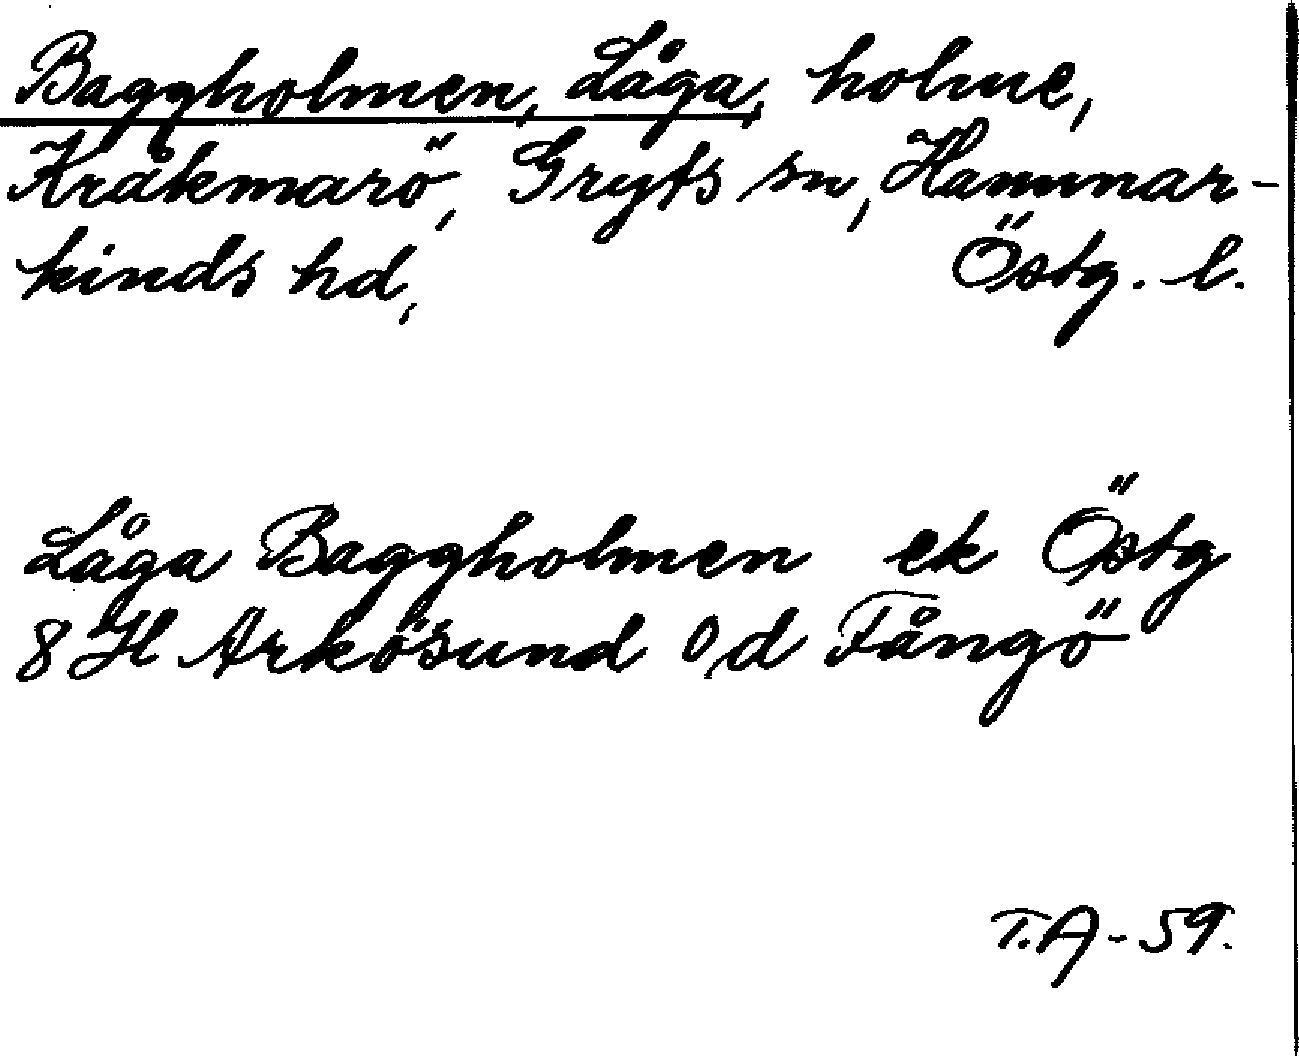 Baggholmen, Låga, holme,
Kråkmarö, Gryts sn, Hammar-
kinds hd, Östg. l.
Låga Baggholmen ek Östg
8 H Arkösund Od Fångö
T.A-59.